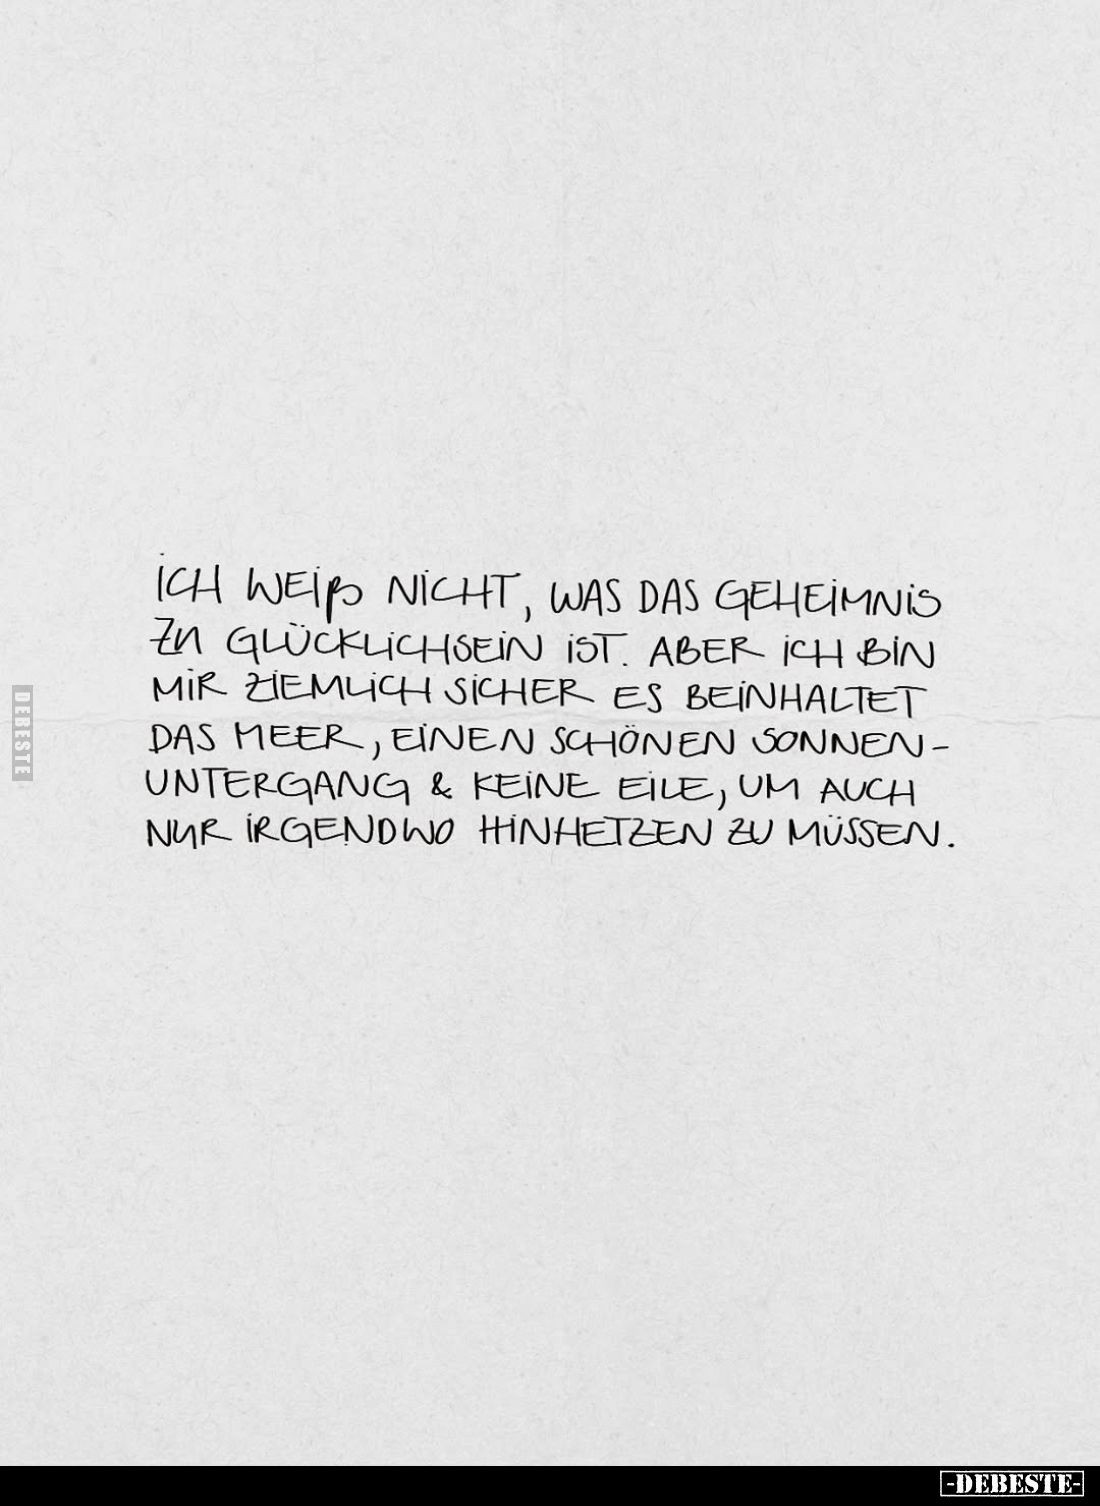 ICH WEIß NICHT, WAS DAS GEHEIMNIS
ZU GLÜCKLICHSEIN IST. ABER ICH BIN
MIR ZIEMLICH SICHER ES BEINHALTET
DAS MEER, EINEN SCHÖNEN SONNEN-
UNTERGANG & KEINE EILE, UM AUCH
NUR IRGENDWO HINHETZEN ZU MÜSSEN.
DEBESTE
-DEBESTE-